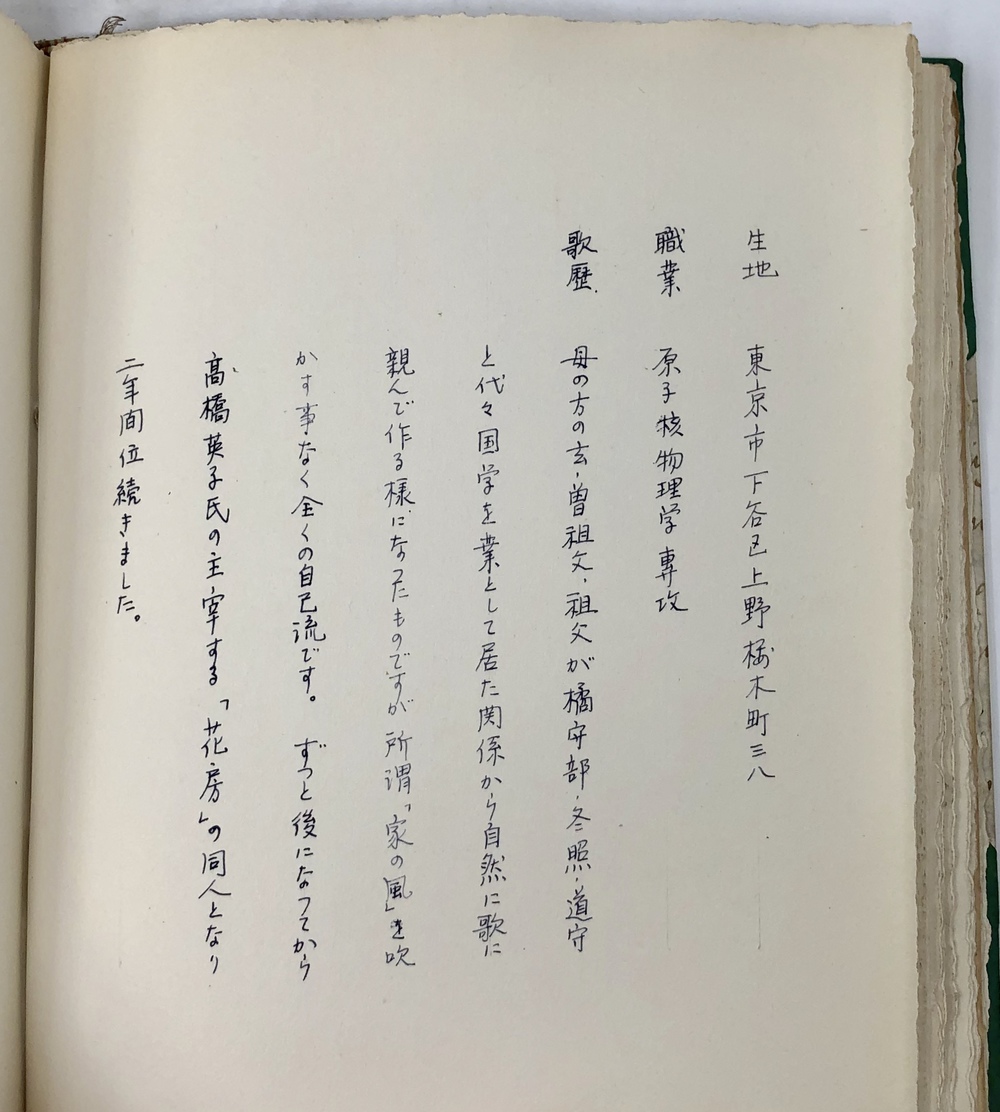 生地　東京市下谷区上野桜木町三八
職業　原子核物理学専攻
歌歴　母の方の玄・曽祖父・祖父が橘守部・冬照・道守
と代々国学を業として居た関係から自然に歌に
親んで作る様になったものですが所謂「家の風」を吹
かす事なく全くの自己流です。ずっと後になってから
高橋英子氏の主宰する「花房」の同人となり
二年間位続きました。